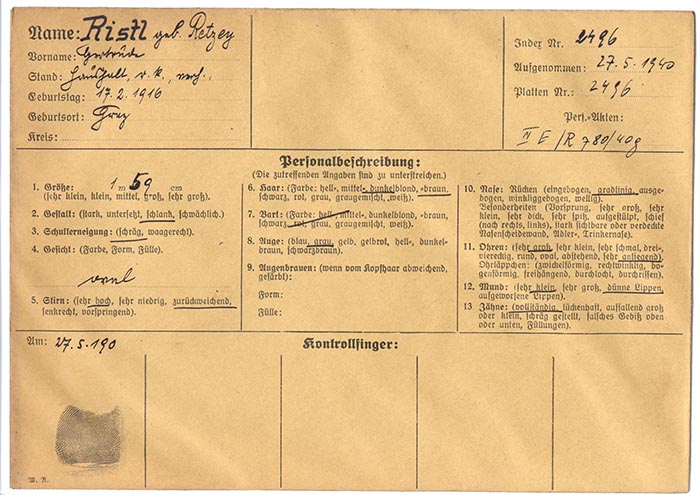 Name: Ristl geb. Retzey
Vorname: Gertrude
Stand: Haushalt, r. k., verh.
Geburtstag: 17. 2. 1916
Geburtsort: Graz
Kreis:
Index Nr. 2496
Aufgenommen: 27. 5. 1940
Platten Nr.: 2496
Pers.-Akten:
II E /R 780/40g
Personalbeschreibung:
(Die zutreffenden Angaben sind zu unterstreichen.)
1. Größe: 1 m 59 cm
(sehr klein, klein, mittel, groß, sehr groß).
2. Gestalt: (stark, untersetzt, schlank, schwächlich.)
3. Schulterneigung: (schräg, waagerecht).
4. Gesicht: (Farbe, Form, Fülle)
oval
5. Stirn: (sehr hoch, sehr niedrig, zurückweichend,
senkrecht, vorspringend).
6. Haar: (Farbe: hell-, mittel-, dunkelblond, -braun,
schwarz, rot, grau, graugemischt, weiß).
7. Bart: (Farbe: hell-, mittel-, dunkelblond, -braun,
schwarz, rot, grau, graugemischt, weiß).
8. Auge: (blau, grau, gelb, gelbrot, hell-, dunkel-
braun, schwarzbraun).
9. Augenbrauen: (wenn vom Kopfhaar abweichend,
gefärbt):
Form:
Fülle:
10. Nase: Rücken (eingebogen, gradlinig, ausge-
bogen, winkliggebogen, wellig).
Besonderheiten (Vorsprung, sehr groß, sehr
klein, sehr dick, sehr spitz, aufgestülpt, schief
(nach rechts, links), stark sichtbare oder verdeckte
Nasenscheidewand, Adler-, Trinkernase).
11. Ohren: (sehr groß, sehr klein, sehr schmal, drei-,
viereckig, rund, oval, abstehend, sehr anliegend).
Ohrläppchen: (zwickelförmig, rechtwinklig, bo-
genförmig, freihängend, durchlocht, durchrissen).
12. Mund: (sehr klein, sehr groß, dünne Lippen,
aufgeworfene Lippen).
13. Zähne: (vollständig, lückenhaft, auffallend groß
oder klein, schräg gestellt, falsches Gebiß oben
oder unten, Füllungen).
Am: 27. 5. 190
Kontrollfinger:
W. R.